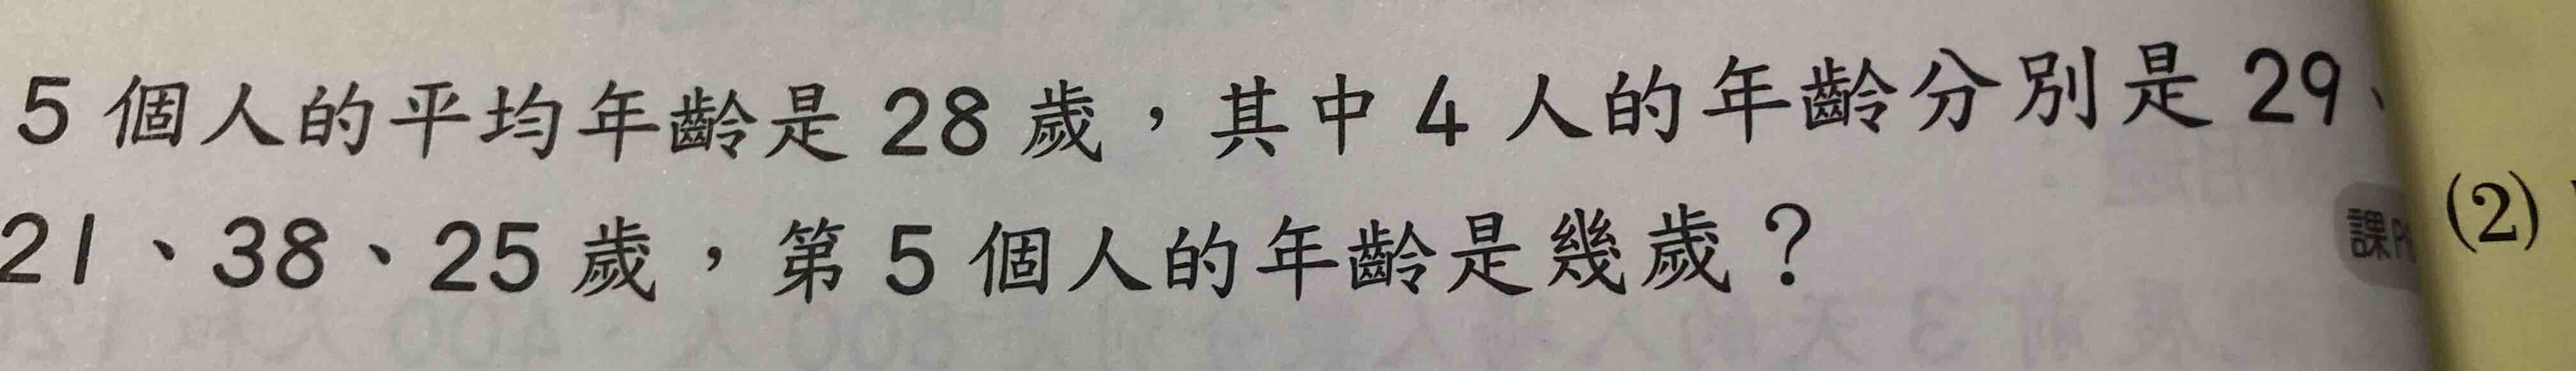 5 個人的平均年齡是 28 歲，其中 4 人的年齡分別是 29、
21、38、25 歲，第 5 個人的年齡是幾歲？
課
(2)